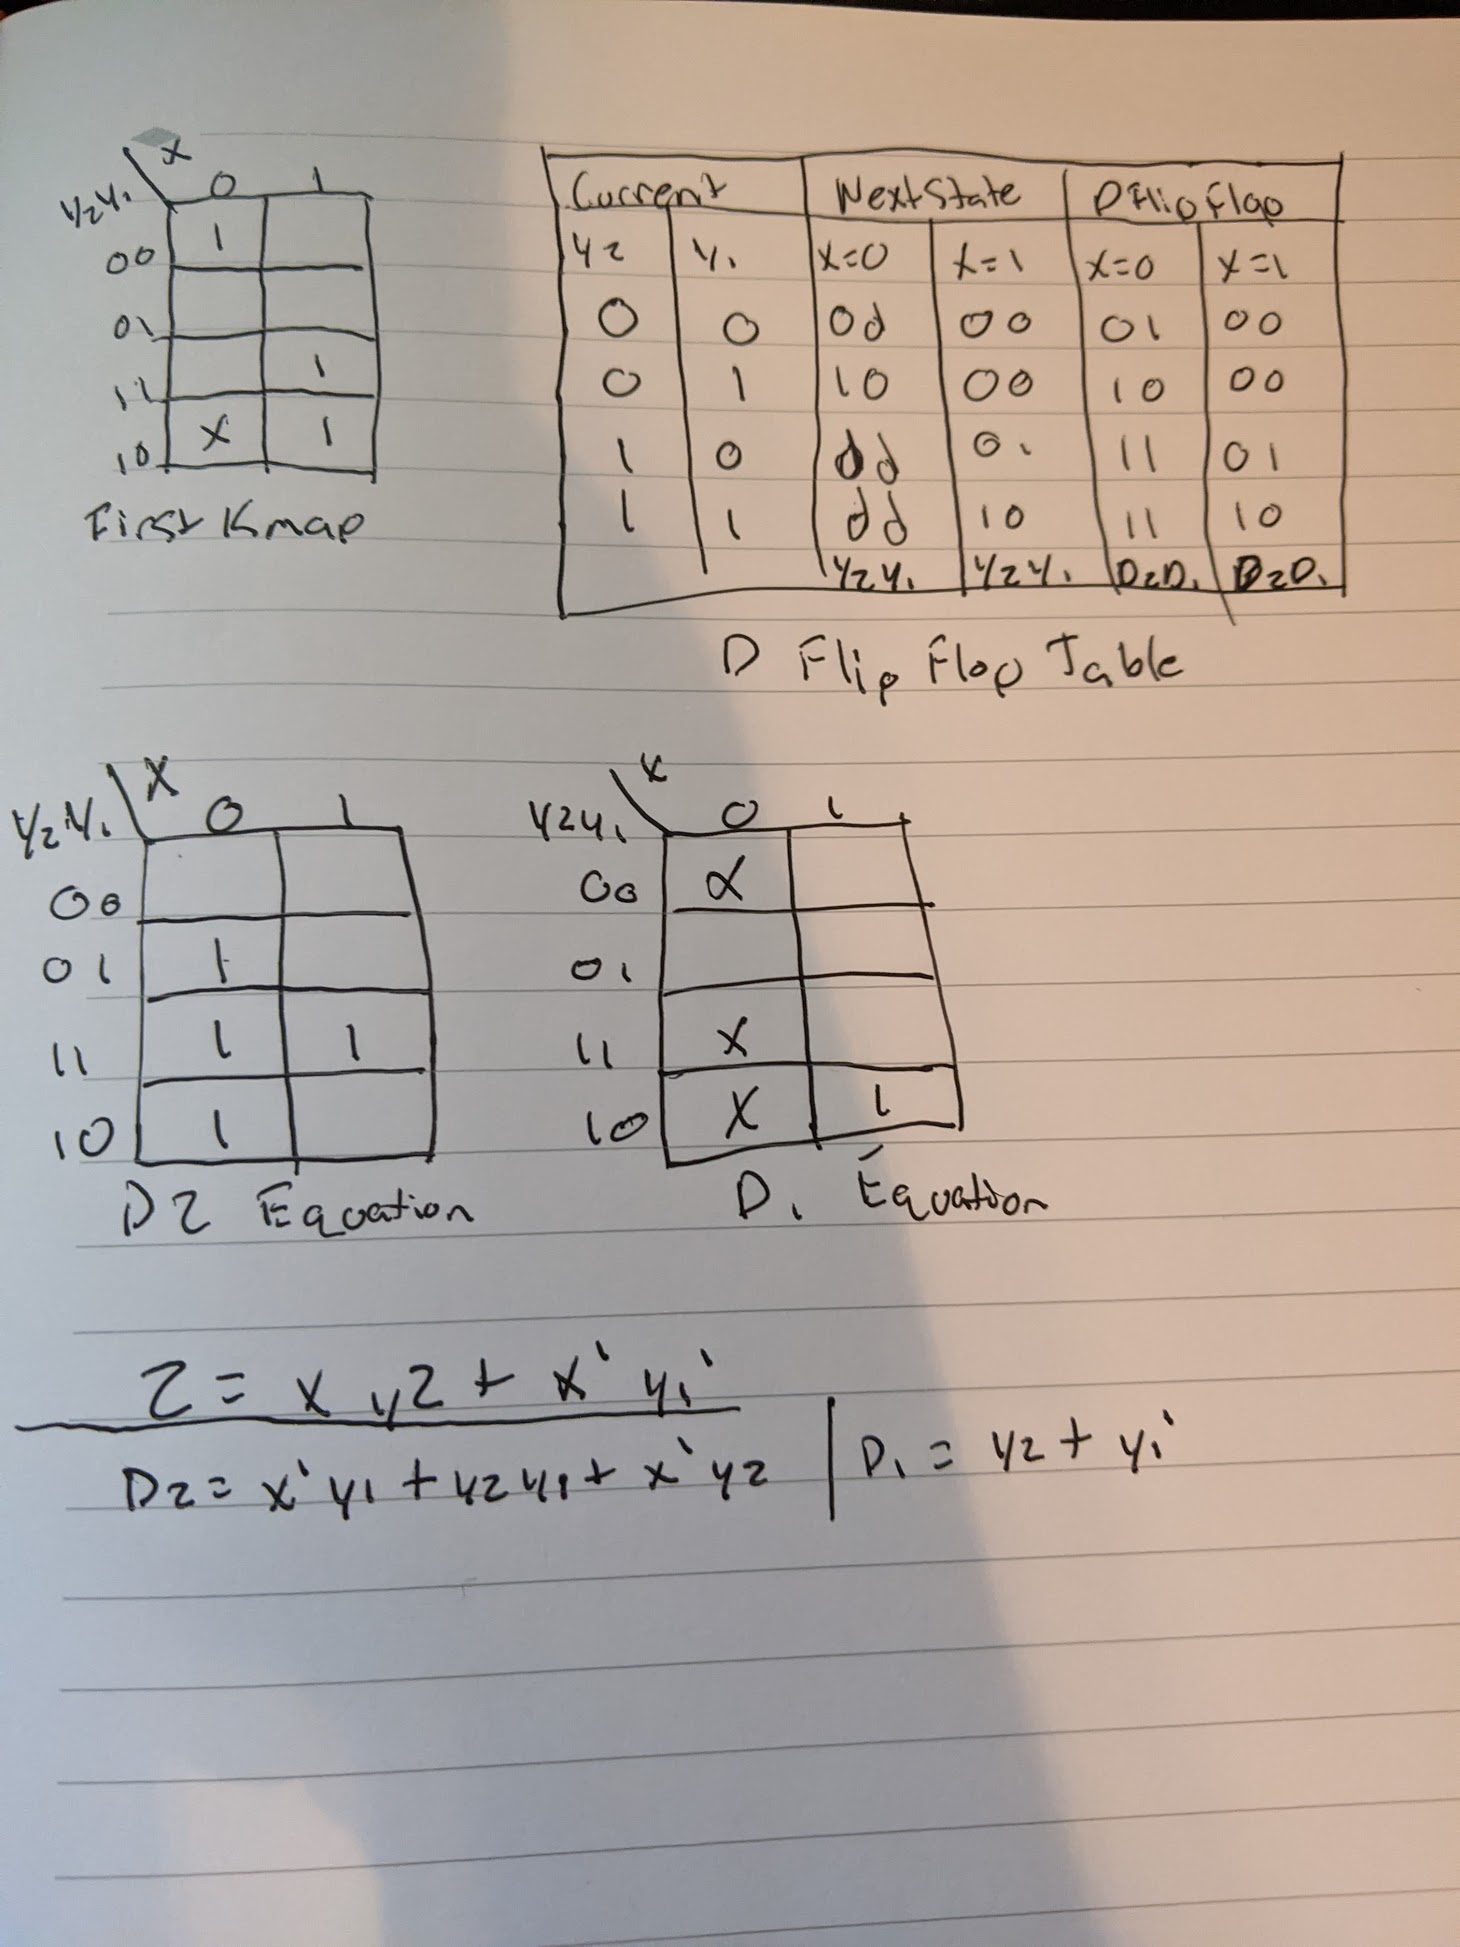 x
y2y1 0 1
00 1
01
11 1
10 x 1
First Kmap
Current Next State D Flip Flop
y2 y1 x=0 x=1 x=0 x=1
0 0 0d 00 01 00
0 1 10 00 10 00
1 0 dd 01 11 01
1 1 dd 10 11 10
y2y1 y2y1 D2D1 D2D1
D Flip Flop Table
x
y2y1 0 1
00
01 1
11 1 1
10 1
D2 Equation
x
y2y1 0 1
00 x
01
11 x
10 x 1
D1 Equation
Z = x y2 + x' y1'
D2 = x' y1 + y2 y1 + x' y2
D1 = y2 + y1'